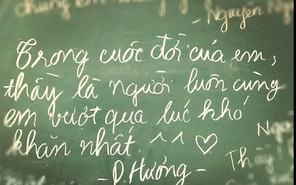 Trong cuộc đời của em,
thầy là người luôn cùng
em vượt qua lúc khó
khăn nhất. ^ ^ ♡
- D.Hương -